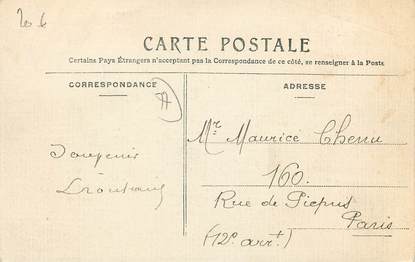 CARTE POSTALE
Certains Pays Étrangers n'acceptant pas la Correspondance de ce côté, se renseigner à la Poste
CORRESPONDANCE
ADRESSE
Souvenir
Mr Maurice Chenu
160.
Rue de Picpus
Paris
(12e arrt)